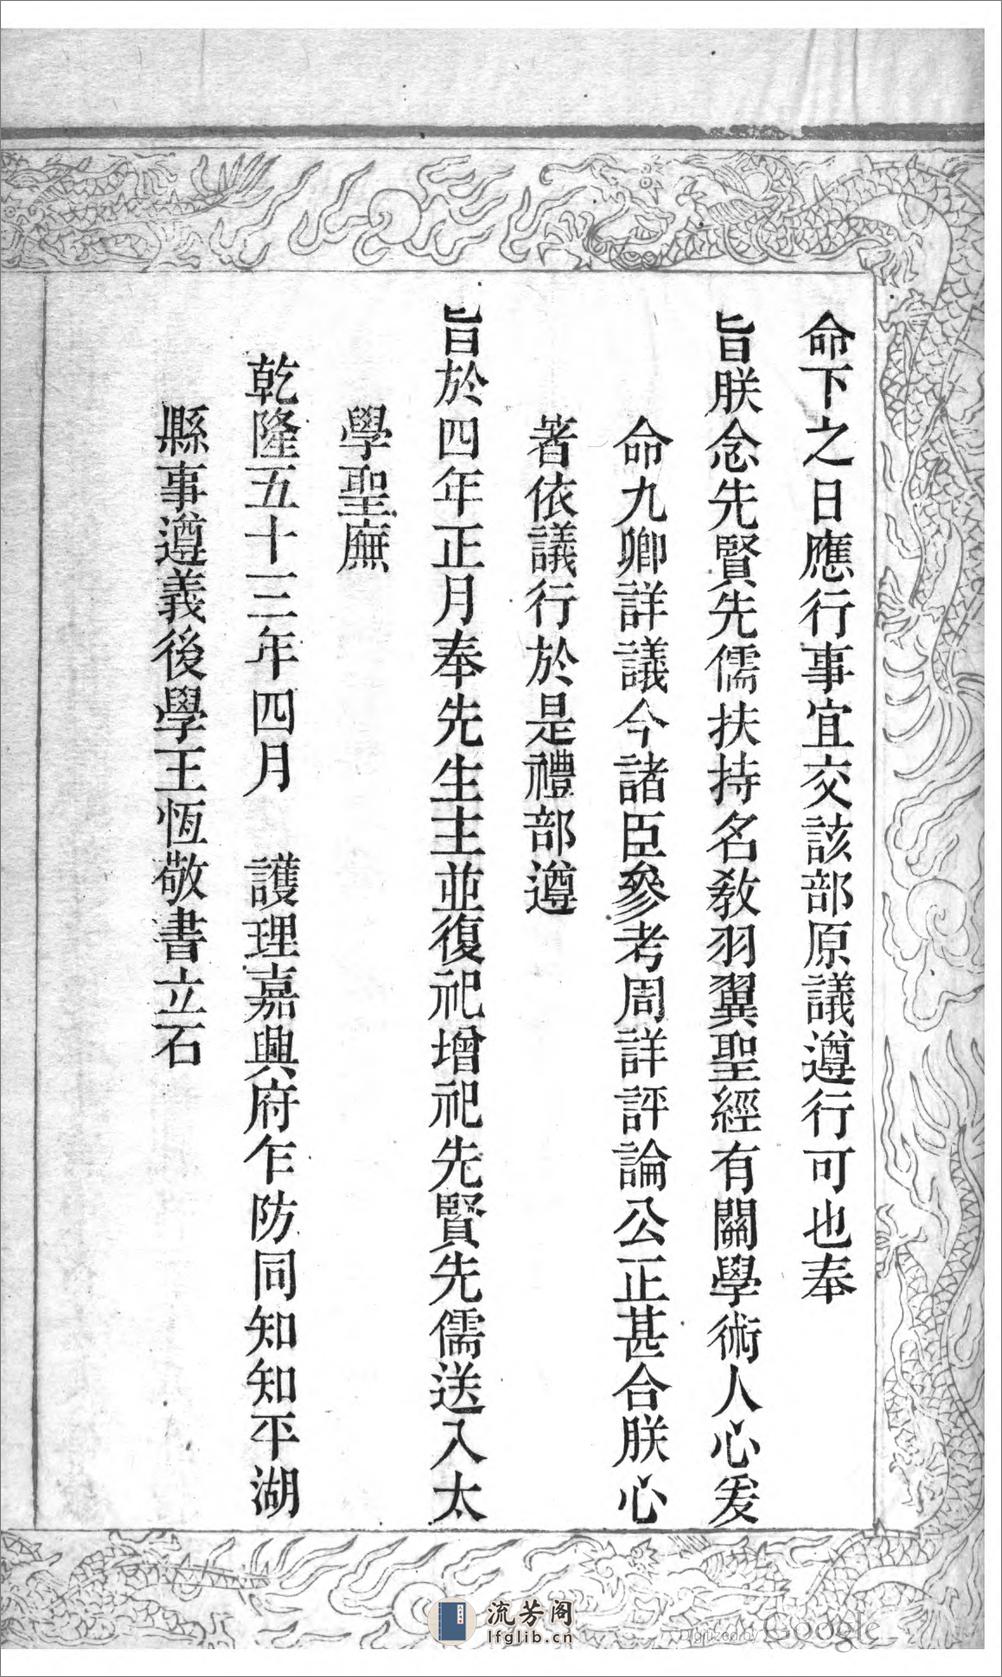 命下之日應行事宜交該部原議遵行可也奉
旨朕念先賢先儒扶持名敎羽翼聖經有關學術人心爰
命九卿詳議今諸臣參考周詳評論公正甚合朕心
著依議行於是禮部遵
旨於四年正月奉先生主並復祀增祀先賢先儒送入太
學聖廡
乾隆五十三年四月 護理嘉興府乍防同知知平湖
縣事遵義後學王恆敬書立石
流芳阁
lfglib.cn
Digitized by Google